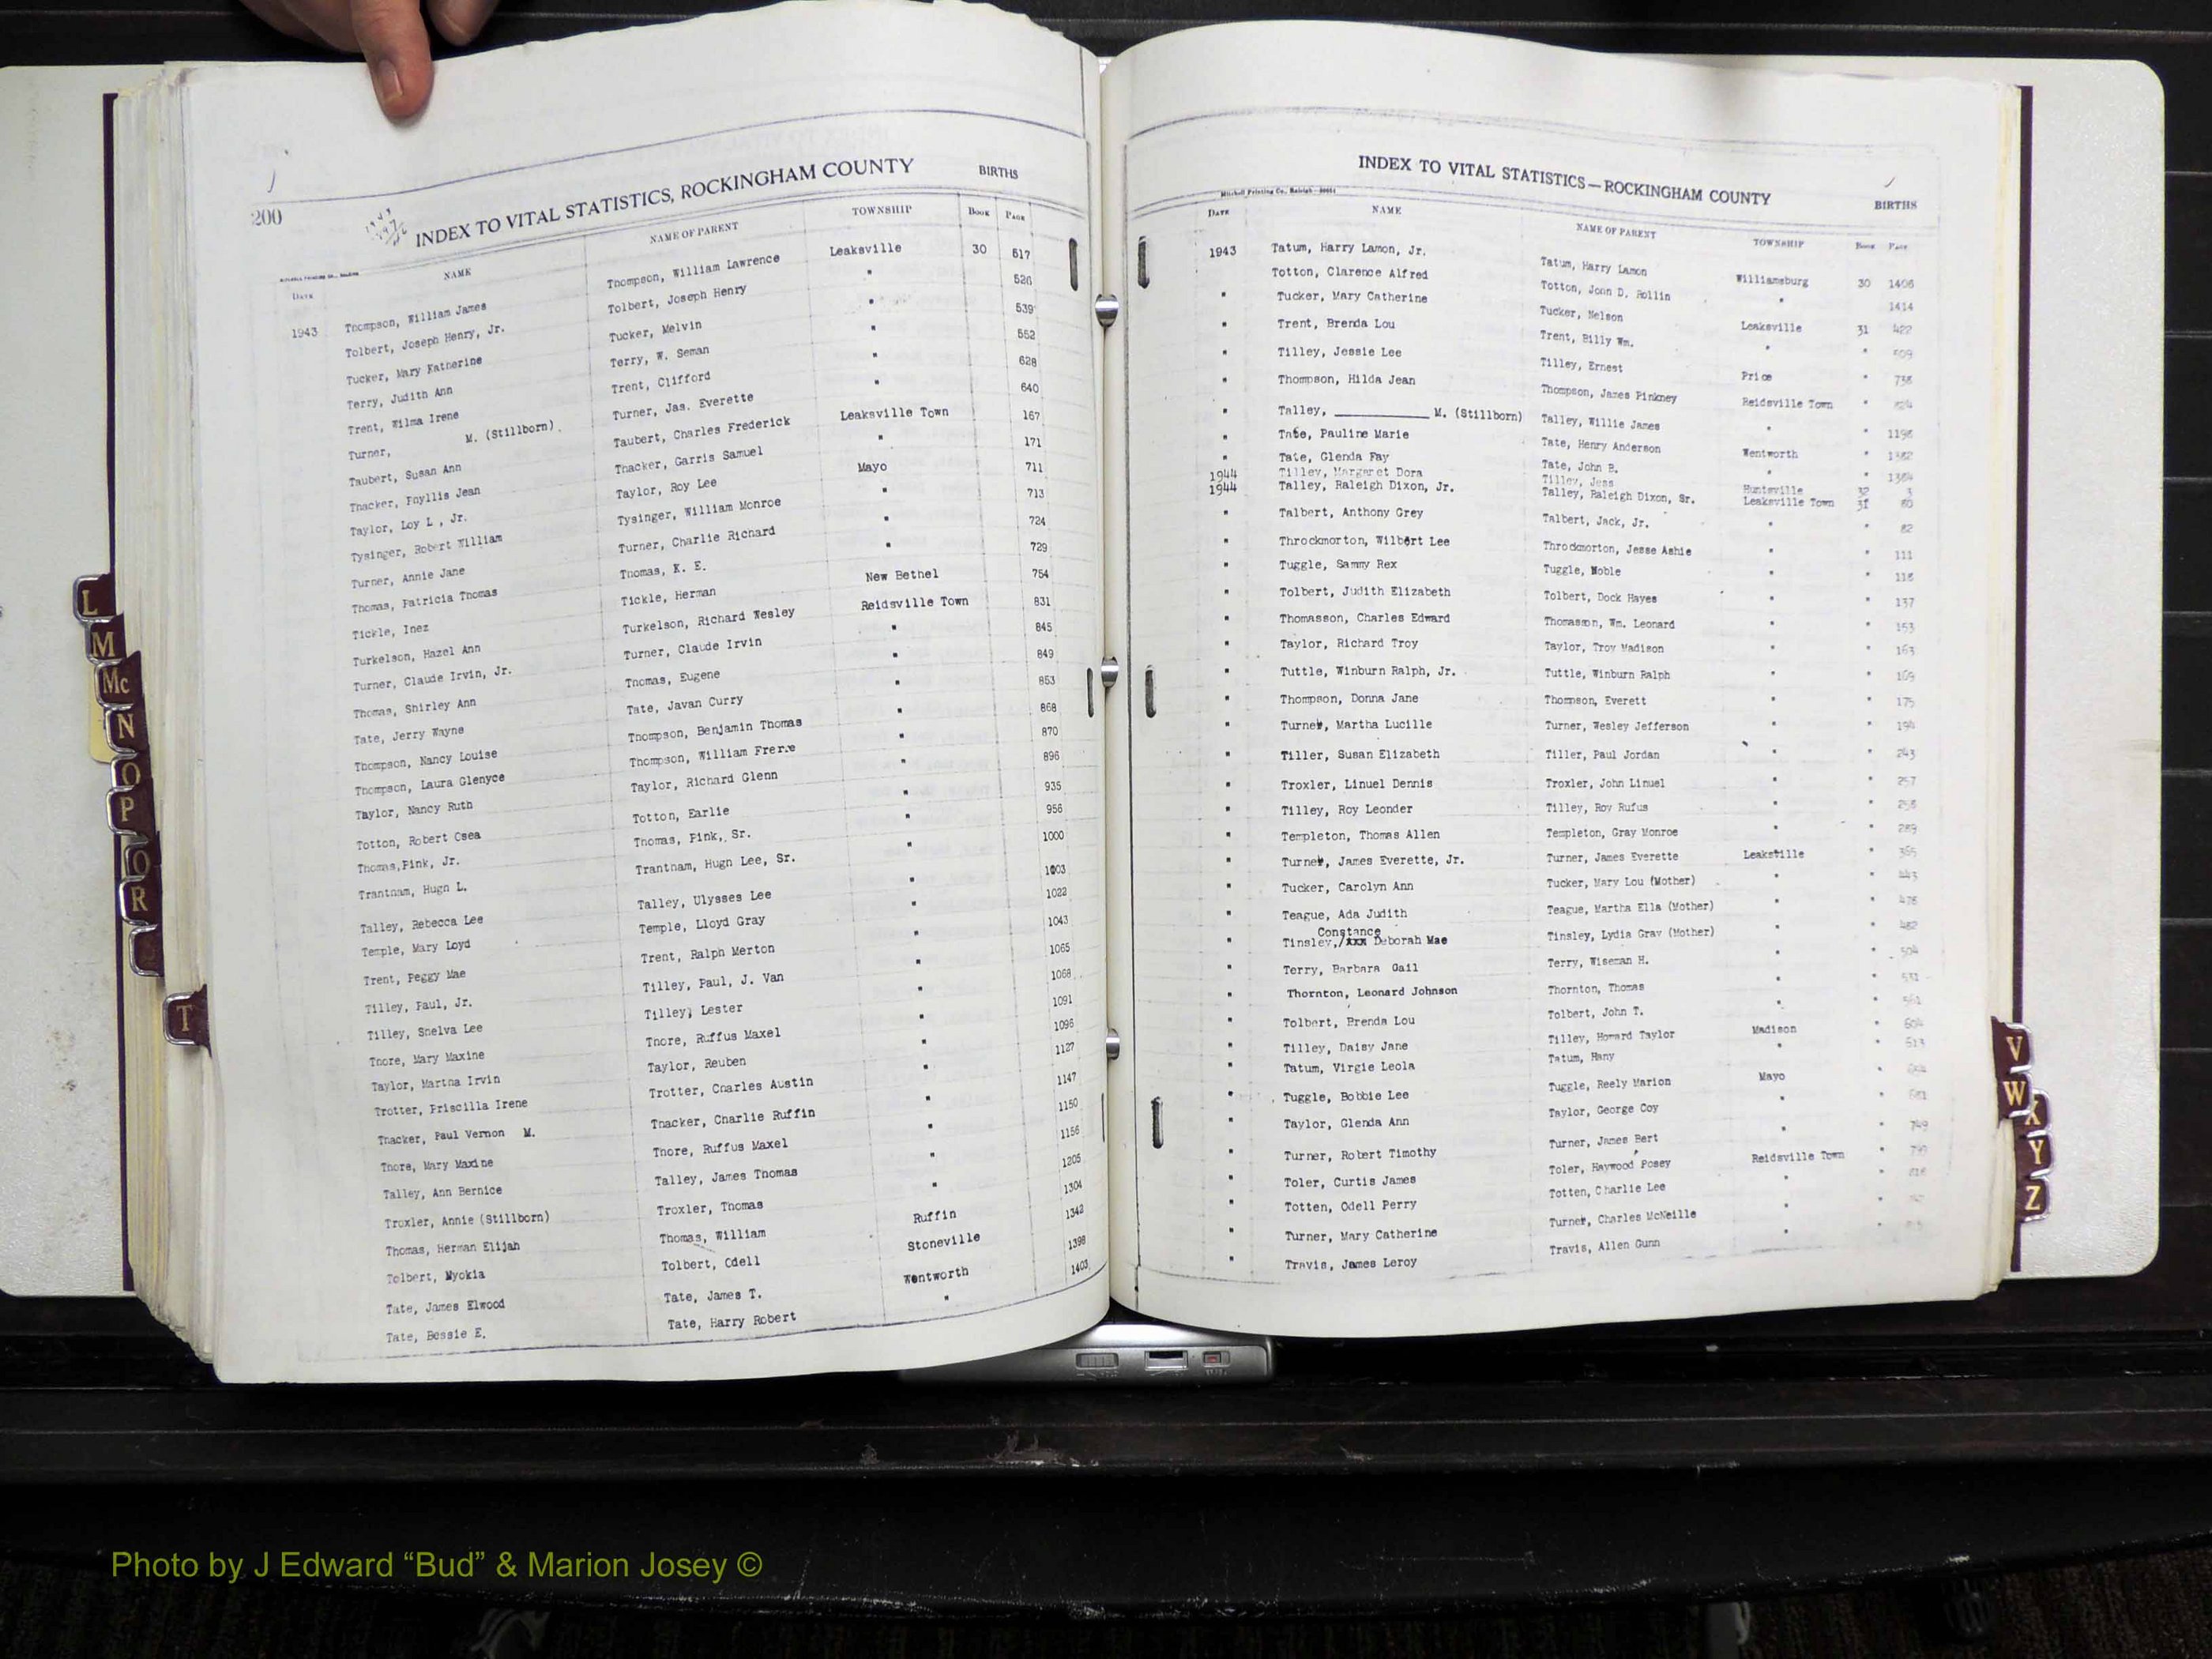 200
INDEX TO VITAL STATISTICS, ROCKINGHAM COUNTY BIRTHS
DATE NAME NAME OF PARENT TOWNSHIP BOOK PAGE
1943 Thompson, William James Thompson, William Lawrence Leaksville 30 517
Tolbert, Joseph Henry, Jr. Tolbert, Joseph Henry " 526
Tucker, Mary Katherine Tucker, Melvin " 539
Terry, Judith Ann Terry, W. Seman " 552
Trent, Wilma Irene Trent, Clifford " 628
Turner, M. (Stillborn) Turner, Jas. Everette " 640
Taubert, Susan Ann Taubert, Charles Frederick Leaksville Town 167
Thacker, Phyllis Jean Thacker, Garris Samuel " 171
Taylor, Loy L , Jr. Taylor, Roy Lee Mayo 711
Tysinger, Robert William Tysinger, William Monroe " 713
Turner, Annie Jane Turner, Charlie Richard " 724
Thomas, Patricia Thomas Thomas, K. E. " 729
Tickle, Inez Tickle, Herman New Bethel 754
Turkelson, Hazel Ann Turkelson, Richard Wesley Reidsville Town 831
Turner, Claude Irvin, Jr. Turner, Claude Irvin " 845
Thomas, Shirley Ann Thomas, Eugene " 849
Tate, Jerry Wayne Tate, Javan Curry " 853
Thompson, Nancy Louise Thompson, Benjamin Thomas " 868
Thompson, Laura Glenyce Thompson, William " 870
Taylor, Nancy Ruth Taylor, Richard Glenn " 896
Totton, Robert Osea Totton, Earlie " 935
Thomas,Pink, Jr. Thomas, Pink, Sr. " 956
Trantham, Hugh L. Trantham, Hugh Lee, Sr. " 1000
Talley, Rebecca Lee Talley, Ulysses Lee " 1003
Temple, Mary Loyd Temple, Lloyd Gray " 1022
Trent, Peggy Mae Trent, Ralph Merton " 1043
Tilley, Paul, Jr. Tilley, Paul, J. Van " 1065
Tilley, Shelva Lee Tilley, Lester " 1068
Thore, Mary Maxine Thore, Ruffus Maxel " 1091
Taylor, Martha Irvin Taylor, Reuben " 1096
Trotter, Priscilla Irene Trotter, Charles Austin " 1127
Thacker, Paul Vernon M. Thacker, Charlie Ruffin " 1147
Thore, Mary Maxine Thore, Ruffus Maxel " 1150
Talley, Ann Bernice Talley, James Thomas " 1156
Troxler, Annie (Stillborn) Troxler, Thomas " 1205
Thomas, Herman Elijah Thomas, William " 1304
Tolbert, Nyokia Tolbert, Odell Ruffin 1342
Tate, James Elwood Tate, James T. Stoneville 1398
Tate, Bessie E. Tate, Harry Robert Wentworth 1403
"
INDEX TO VITAL STATISTICS—ROCKINGHAM COUNTY BIRTHS
Mitchell Printing Co., Raleigh
DATE NAME NAME OF PARENT TOWNSHIP BOOK PAGE
1943 Tatum, Harry Lamon, Jr. Tatum, Harry Lamon Williamsburg 30 1406
Totton, Clarence Alfred Totton, John D. Rollin " 1414
" Tucker, Mary Catherine Tucker, Nelson Leaksville 31 422
" Trent, Brenda Lou Trent, Billy Wm. " " 509
" Tilley, Jessie Lee Tilley, Ernest Price "
" Thompson, Hilda Jean Thompson, James Pinkney Reidsville Town "
" Talley, M. (Stillborn) Talley, Willie James " "
" Tate, Pauline Marie Tate, Henry Anderson Wentworth "
" Tate, Glenda Fay Tate, John B. "
1944 Tilley, Margaret Dora Tilley, Jess Huntsville 32 3
1944 Talley, Raleigh Dixon, Jr. Talley, Raleigh Dixon, Sr. Leaksville Town 31 60
" Talbert, Anthony Grey Talbert, Jack, Jr. " " 82
" Throckmorton, Wilbert Lee Throckmorton, Jesse Ashie " " 111
" Tuggle, Sammy Rex Tuggle, Noble " " 118
" Tolbert, Judith Elizabeth Tolbert, Dock Hayes " " 137
" Thomasson, Charles Edward Thomasson, Wm. Leonard " " 153
" Taylor, Richard Troy Taylor, Troy Madison " " 163
" Tuttle, Winburn Ralph, Jr. Tuttle, Winburn Ralph " " 169
" Thompson, Donna Jane Thompson, Everett " " 175
" Turner, Martha Lucille Turner, Wesley Jefferson " " 194
" Tiller, Susan Elizabeth Tiller, Paul Jordan " " 243
" Troxler, Linuel Dennis Troxler, John Linuel " " 257
" Tilley, Roy Leonder Tilley, Roy Rufus " " 258
" Templeton, Thomas Allen Templeton, Gray Monroe " " 289
" Turner, James Everette, Jr. Turner, James Everette Leaksville " 365
" Tucker, Carolyn Ann Tucker, Mary Lou (Mother) " " 443
" Teague, Ada Judith Teague, Martha Ella (Mother) " " 478
Constance
" Tinsley,/xxx Deborah Mae Tinsley, Lydia Gray (Mother) " " 482
" Terry, Barbara Gail Terry, Wiseman H. " " 504
" Thornton, Leonard Johnson Thornton, Thomas " " 531
" Tolbert, Brenda Lou Tolbert, John T. " " 561
" Tilley, Daisy Jane Tilley, Howard Taylor Madison " 604
" Tatum, Virgie Leola Tatum, Hany " " 613
" Tuggle, Bobbie Lee Tuggle, Reely Marion Mayo "
" Taylor, Glenda Ann Taylor, George Coy "
" Turner, Robert Timothy Turner, James Bert " " 749
" Toler, Curtis James Toler, Haywood Posey Reidsville Town " 799
" Totten, Odell Perry Totten, Charlie Lee " "
" Turner, Mary Catherine Turner, Charles McNeille " "
" Travis, James Leroy Travis, Allen Gunn " "
L
M
Mc
N
O
P
Q
R
T
V
W
X
Y
Z
Photo by J Edward “Bud” & Marion Josey ©